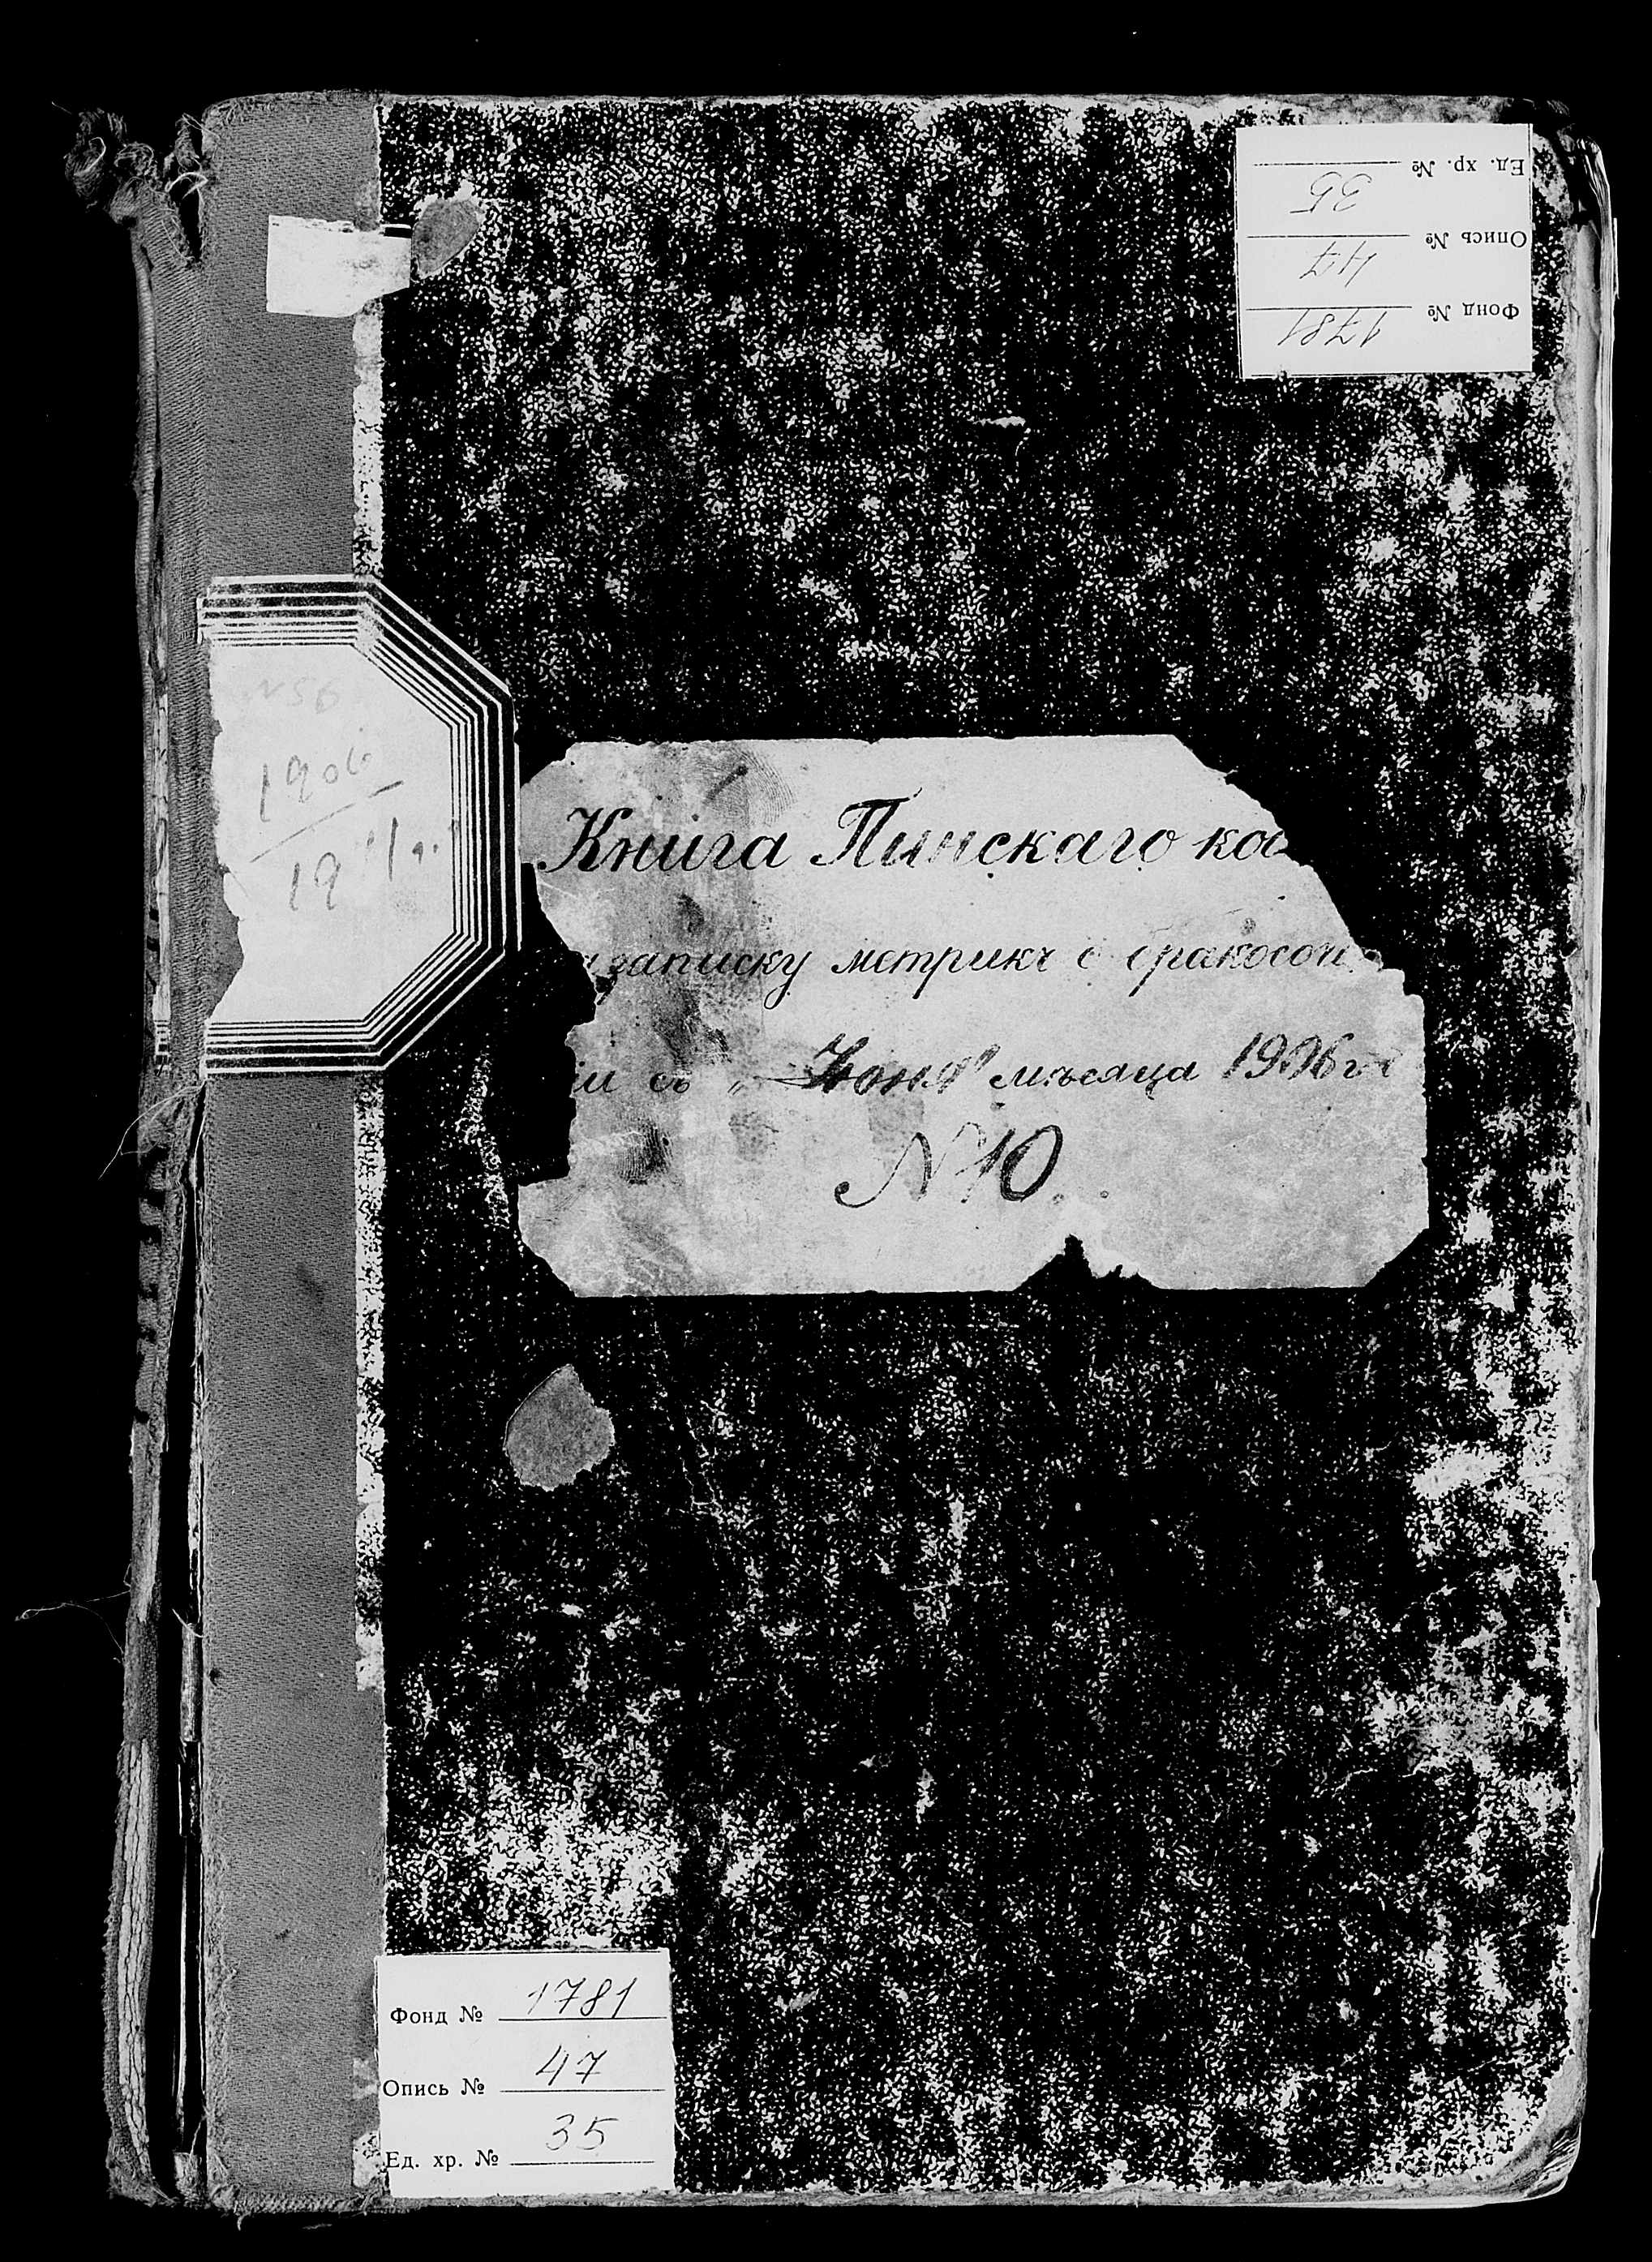 Ед. хр. № 35
Опись № 47
Фонд № 1781
№ 56
1906
1911 г.
Книга Пинскаго кос
а записку метрикъ о бракосоч
іи съ " Іюня" мѣсяца 1906 г
№ 10.
Фонд № 1781
Опись № 47
Ед. хр. № 35